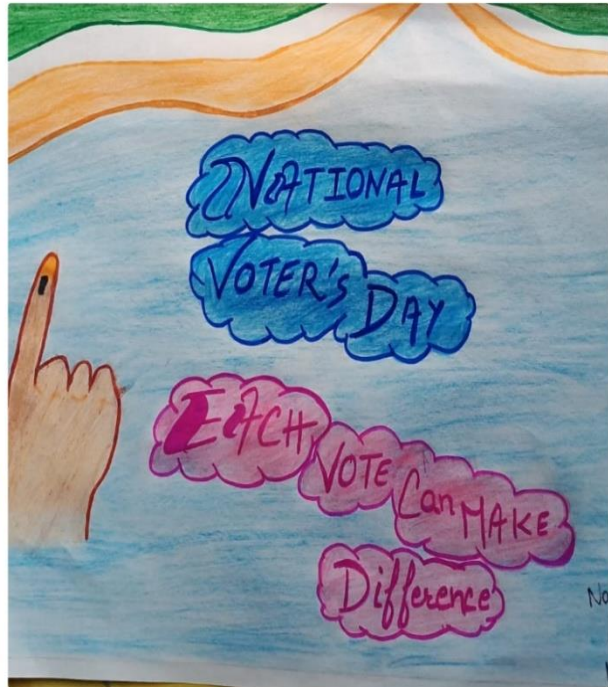 NATIONAL
VOTER'S DAY
EACH
VOTE
Can MAKE
Difference